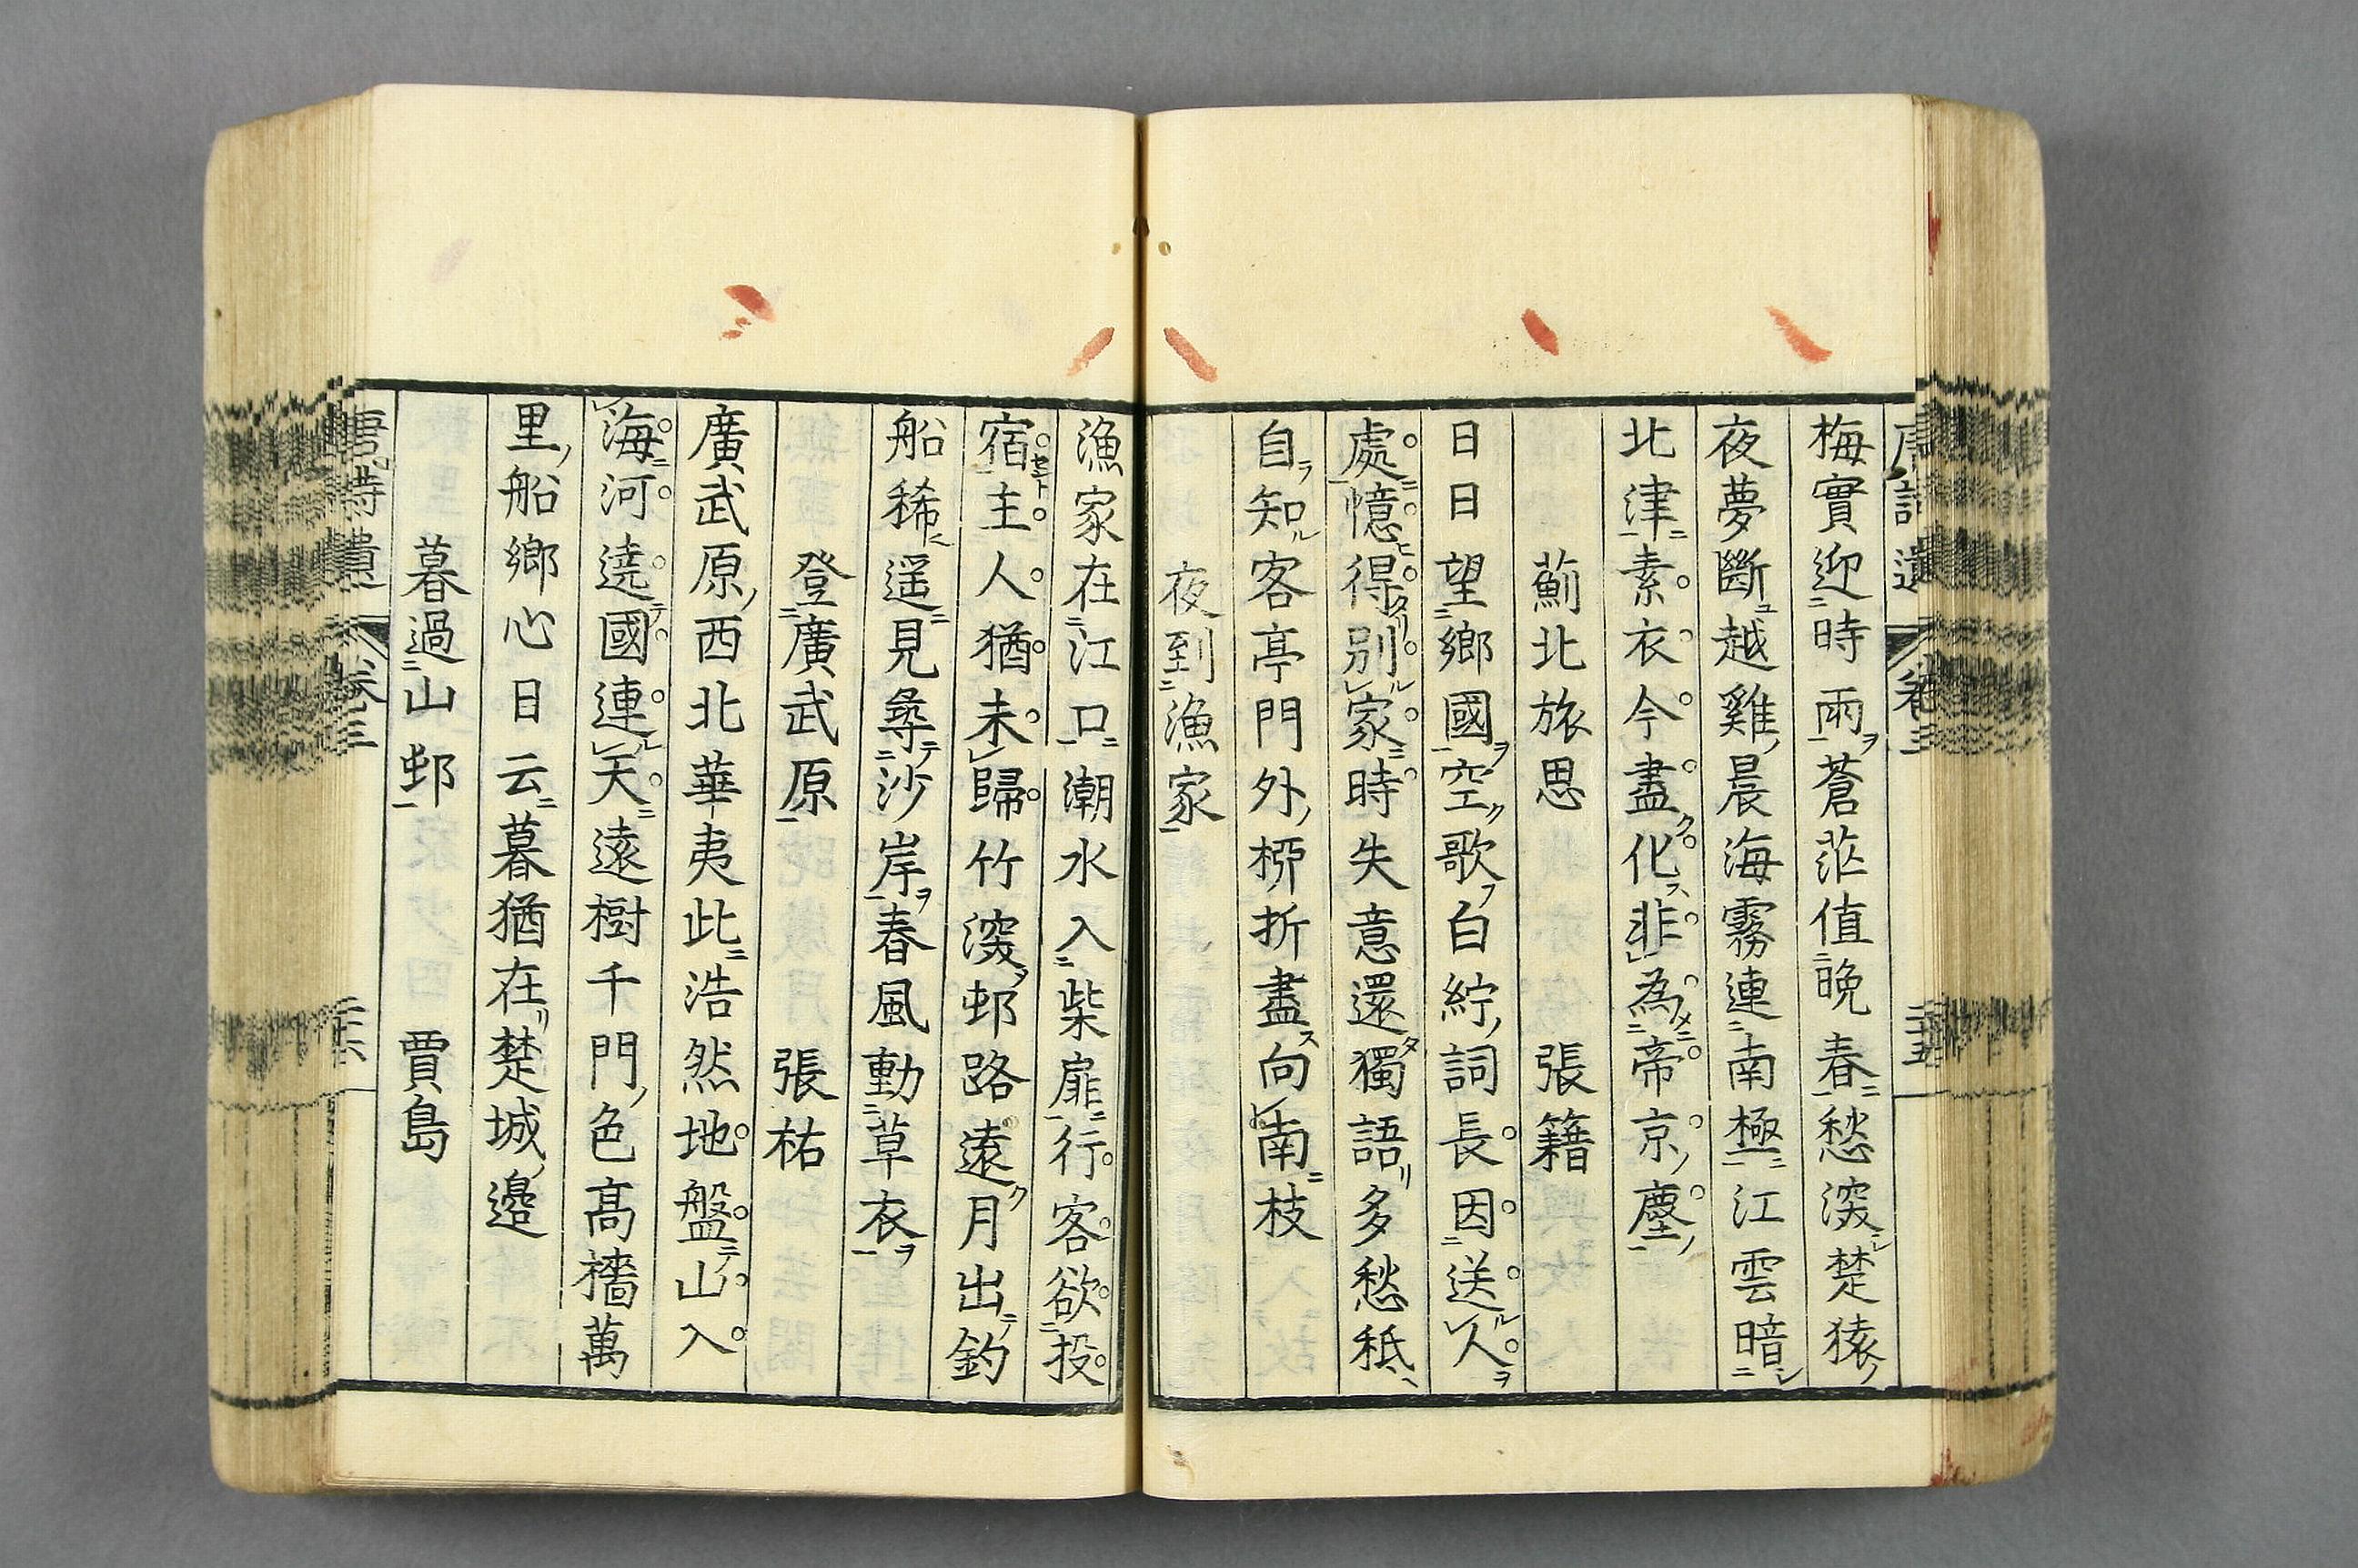 梅實迎時雨蒼茫值晚春愁深楚猿
夜夢斷越雞晨海霧連南極江雲暗
北津素衣今盡化非為帝京塵
薊北旅思　張籍
日日望鄉國空歌白紵詞長因送人
處憶得別家時失意還獨語多愁秪
自知客亭門外栁折盡向南枝
夜到漁家
漁家在江口潮水入柴扉行客欲投
宿主人猶未歸竹深邨路遠月出釣
船稀遥見尋沙岸春風動草衣
登廣武原　張祐
廣武原西北華夷此浩然地盤山入
海河遶國連天遠樹千門色高檣萬
里船鄉心日云暮猶在楚城邊
暮過山邨　賈島